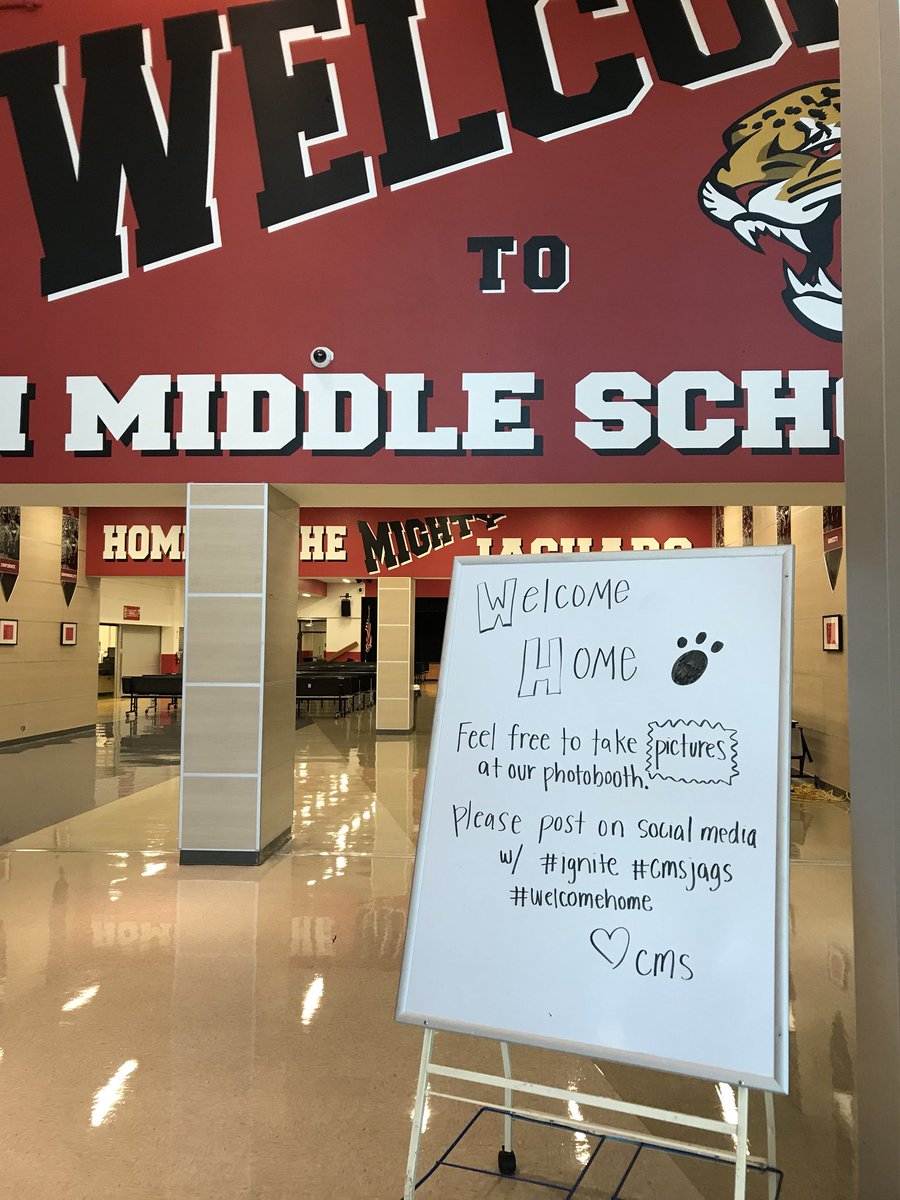 WELCOME
TO
MIDDLE SCHO
HOME THE MIGHTY JAGUARS
Welcome
Home
Feel free to take pictures
at our photobooth.
Please post on social media
w/ #ignite #cmsjags
#welcomehome
♡ cms